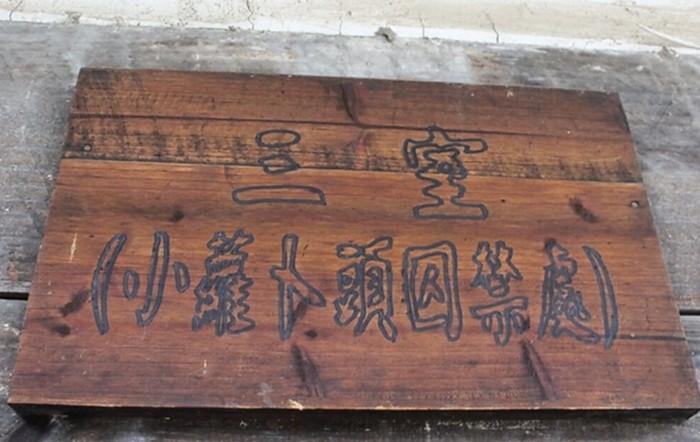 三室
(小蘿卜頭囚禁處)